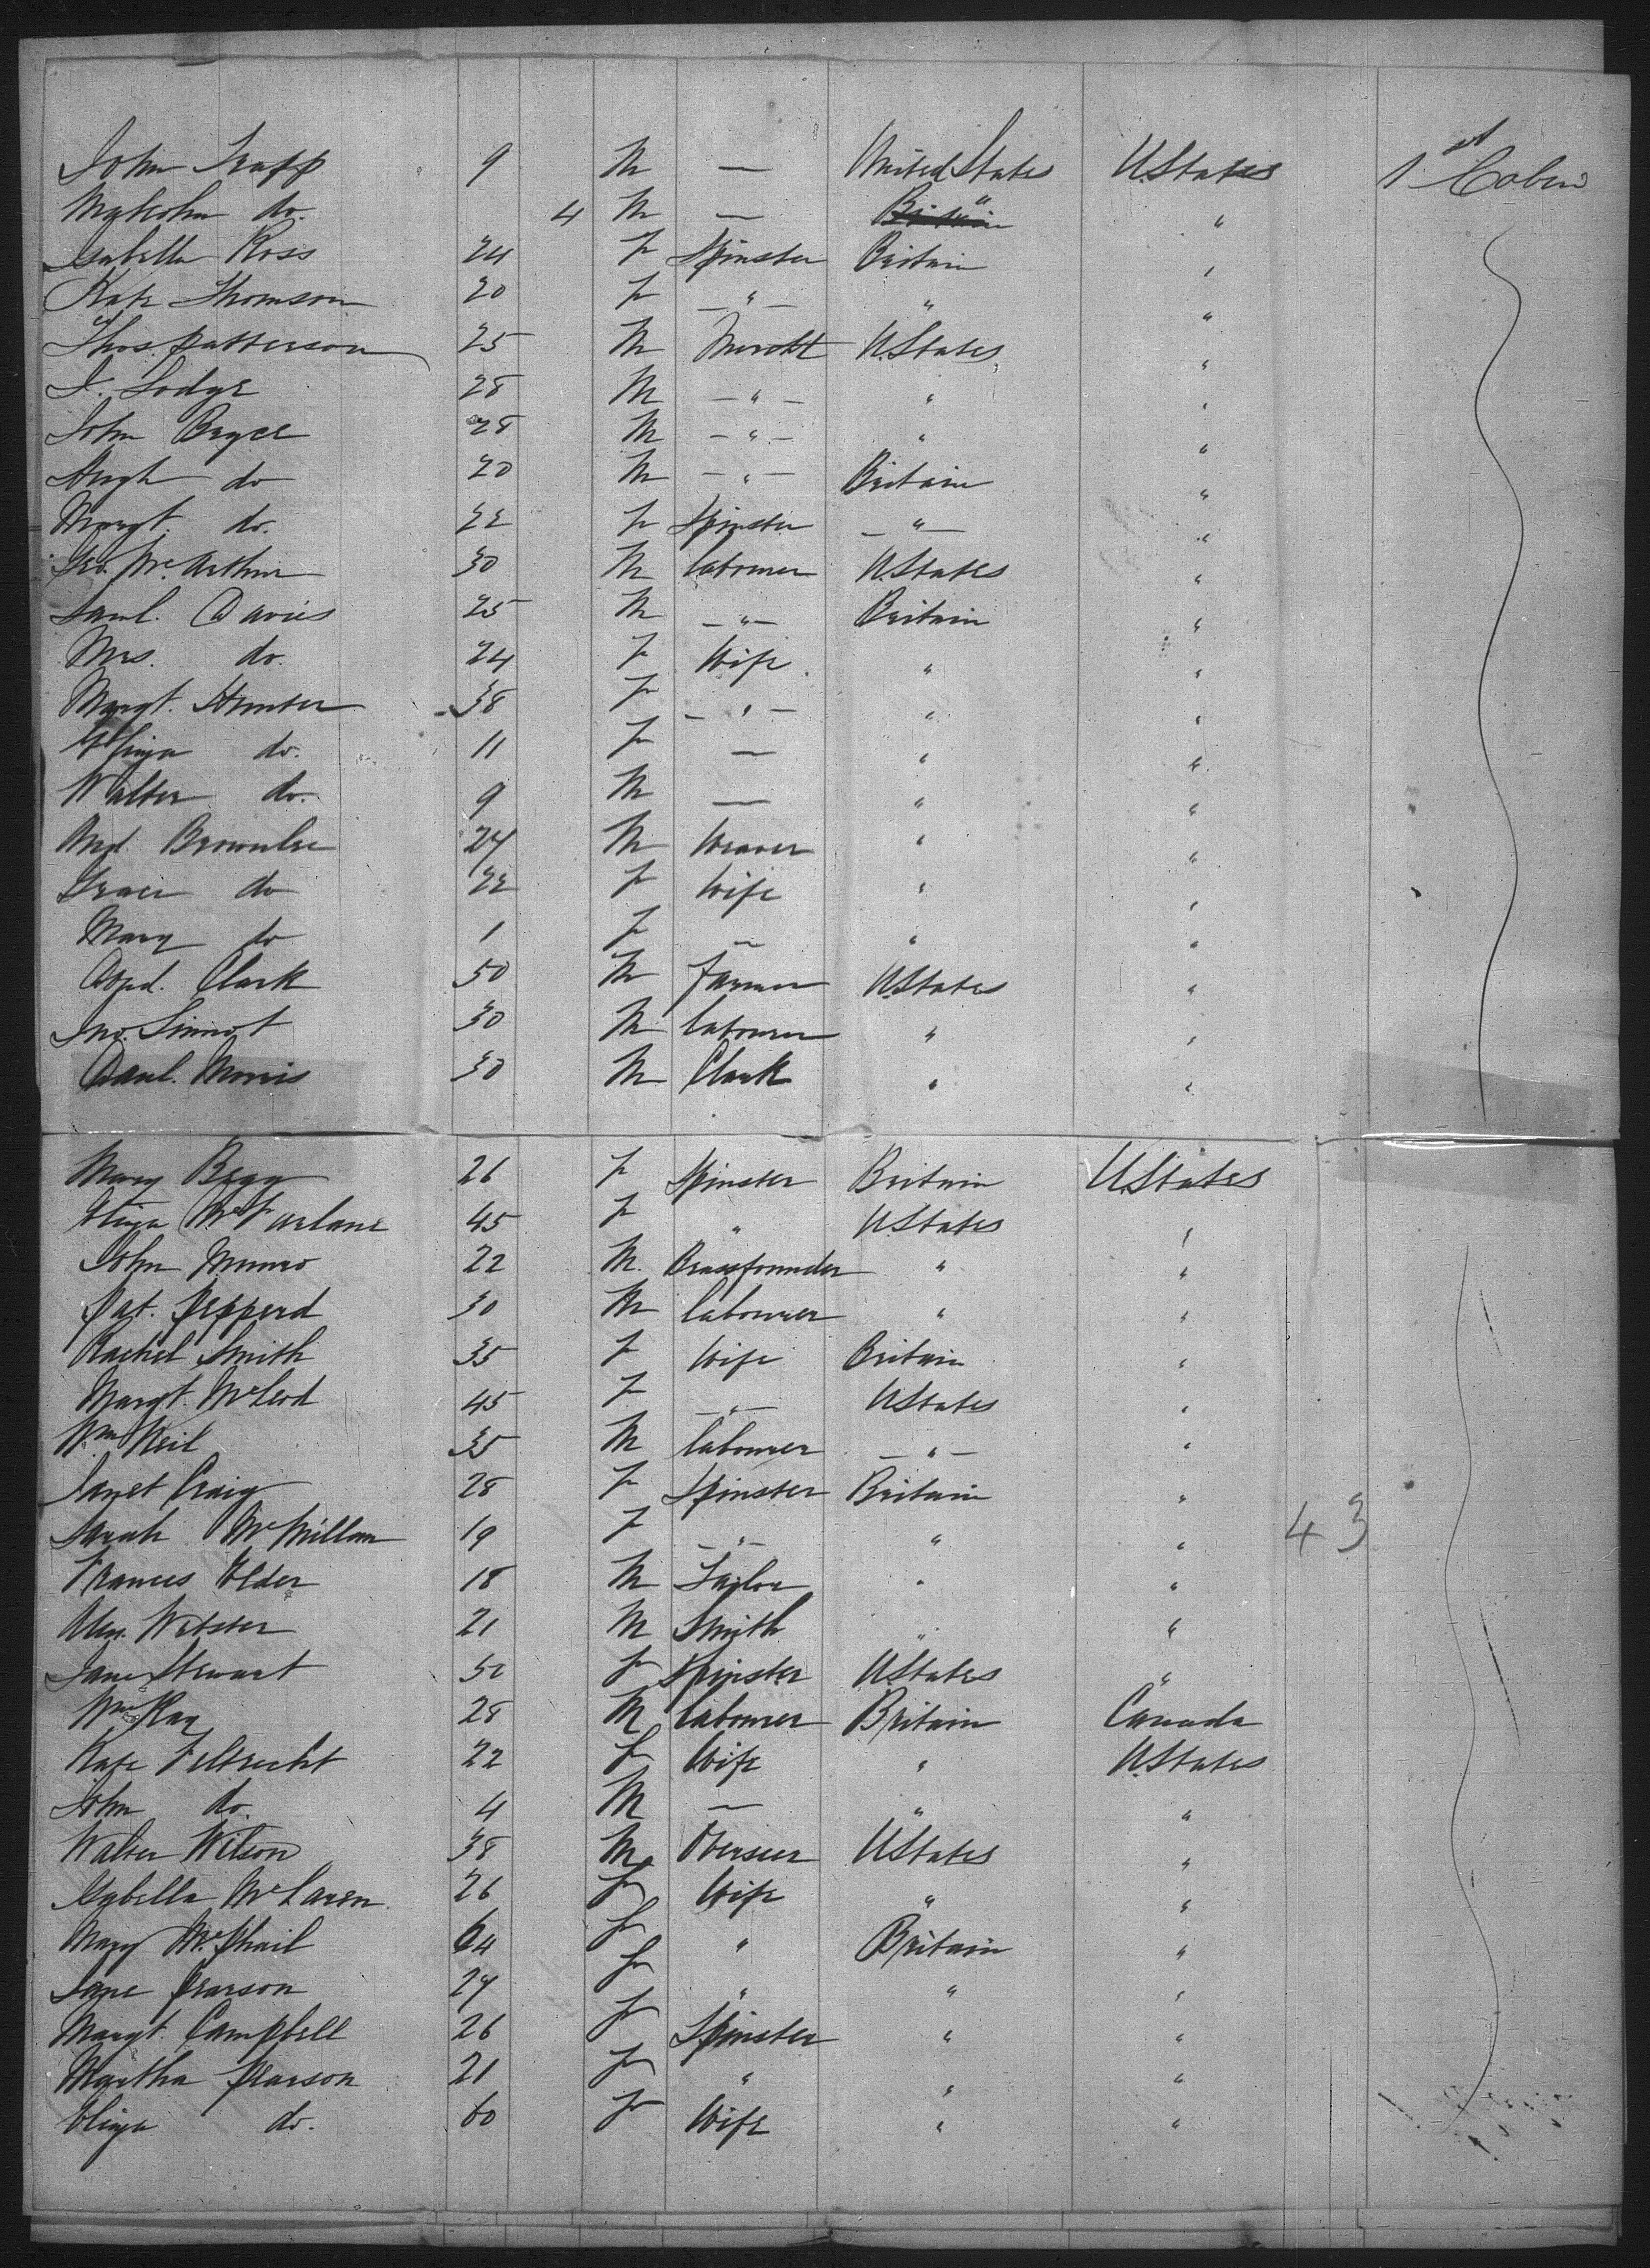 John Trapp 9 M — United States U.States 1st Cabin
Malcolm do. 4 M — " "
Isabella Ross 24 F Spinster Britain "
Kate Thomson 20 F — " — " "
Thos. Patterson 25 M Mercht U.States "
I. Lodge 28 M — " — " "
John Bryce 28 M — " — " "
Hugh do 20 M — " — Britain "
Margt. do. 22 F Spinster — " — "
Geo. McArthur 30 M labourer U.States "
Saml. Davies 25 M — " — Britain "
Mrs. do. 24 F Wife " "
Margt. Hunter 38 F — " — " "
Eliza do. 11 F — " "
Walter do. 9 M — " "
And. Brownlee 24 M Weaver " "
Grace do 22 F Wife " "
Mary do 1 F — " "
Clark 50 M Farmer U.States "
Jno. Sinnot 30 M labourer " "
Danl. Morris 30 M Clark " "
Mary Begg 26 F Spinster Britain U.States
Eliza McFarlane 45 F " U.States "
John Munro 22 M. Brassfounder " "
Pat. Pepperd 30 M labourer " "
Rachel Smith 35 F Wife Britain "
Margt. McLeod 45 F — " — U.States "
Wm Neil 35 M labourer — " — "
Janet Craig 28 F Spinster Britain "
Sarah McMillan 19 F — " — " " 43
Frances Elder 18 M Tailor " "
Alex. Webster 21 M Smith " "
Jane Stewart 52 F Spinster U.States "
Wm Kay 28 M labourer Britain Canada
Kate Feltrecht 22 F Wife " U.States
John do. 4 M — " "
Walter Wilson 38 M Overseer U.States "
Isabella McLaren 26 F Wife " "
Mary McPhail 64 F " Britain "
Jane Pearson 27 F " " "
Margt. Campbell 26 F Spinster " "
Martha Pearson 21 F " " "
Eliza do. 60 F Wife " "